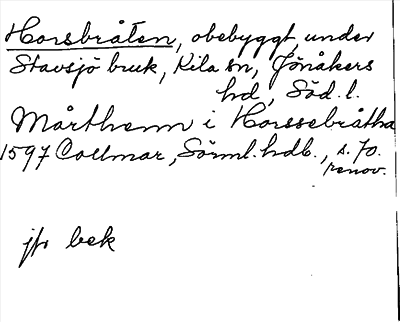 Horsbråten, obebyggt, under
Stavsjö bruk, Kila sn, Jönåkers
hd, Söd. l.
Mårthenn i Horssebråtha
1597 Collmar, Sörml. hdb., s. 70.
renov.
jfr bek